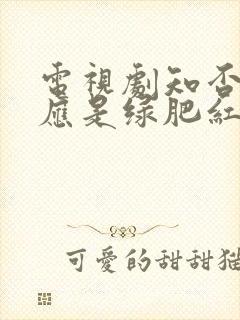 電視劇知否
應是绿肥紅
可愛的甜甜猫